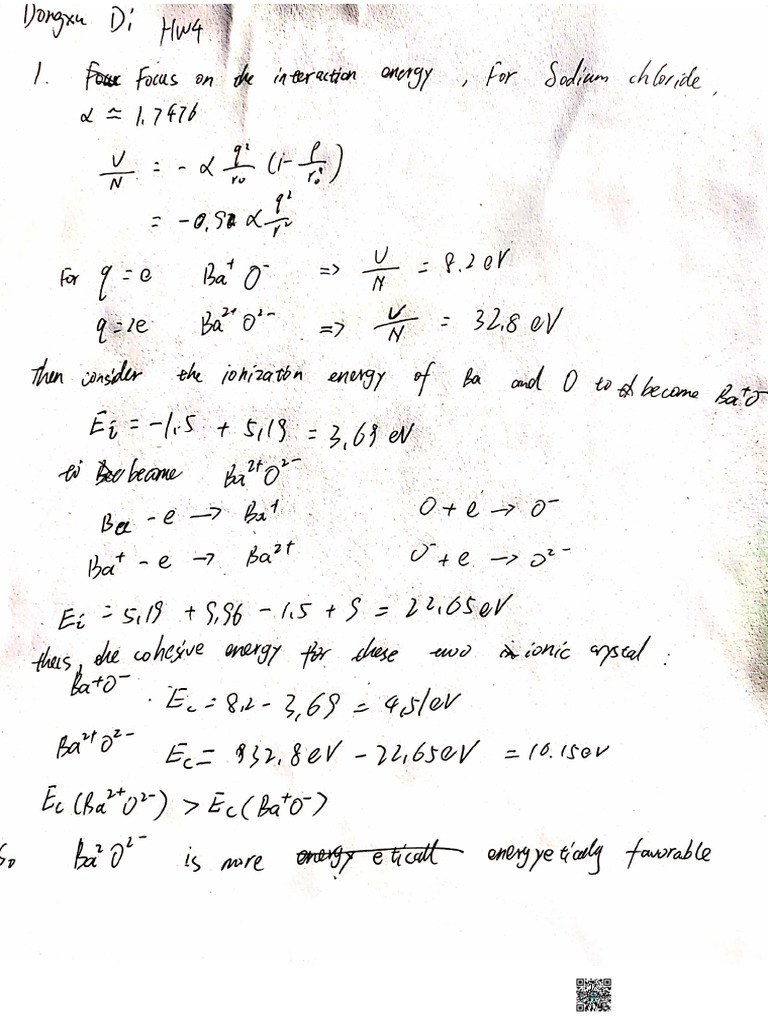 Dongxu Di HW4
1. Focus on the interaction energy, For Sodium chloride,
α ≃ 1.7476
U/N = - α q²/r₀ (1 - ρ/r₀)
= -0.92 α q²/r²
For q = e Ba⁺ O⁻ => U/N = 8.2 eV
q = 2e Ba²⁺ O²⁻ => U/N = 32.8 eV
Then consider the ionization energy of Ba and O to become Ba⁺O⁻
Ei = -1.5 + 5.19 = 3.69 eV
become Ba²⁺O²⁻
Ba - e → Ba⁺ O + e → O⁻
Ba⁺ - e → Ba²⁺ O⁻ + e → O²⁻
Ei = 5.19 + 9.96 - 1.5 + 9 = 22.65 eV
thus, the cohesive energy for these two ionic crystal :
Ba⁺O⁻ . Ec = 8.2 - 3.69 = 4.51 eV
Ba²⁺O²⁻ Ec = 32.8 eV - 22.65 eV = 10.15 eV
Ec (Ba²⁺O²⁻) > Ec (Ba⁺O⁻)
So Ba²O²⁻ is more energyetically favorable